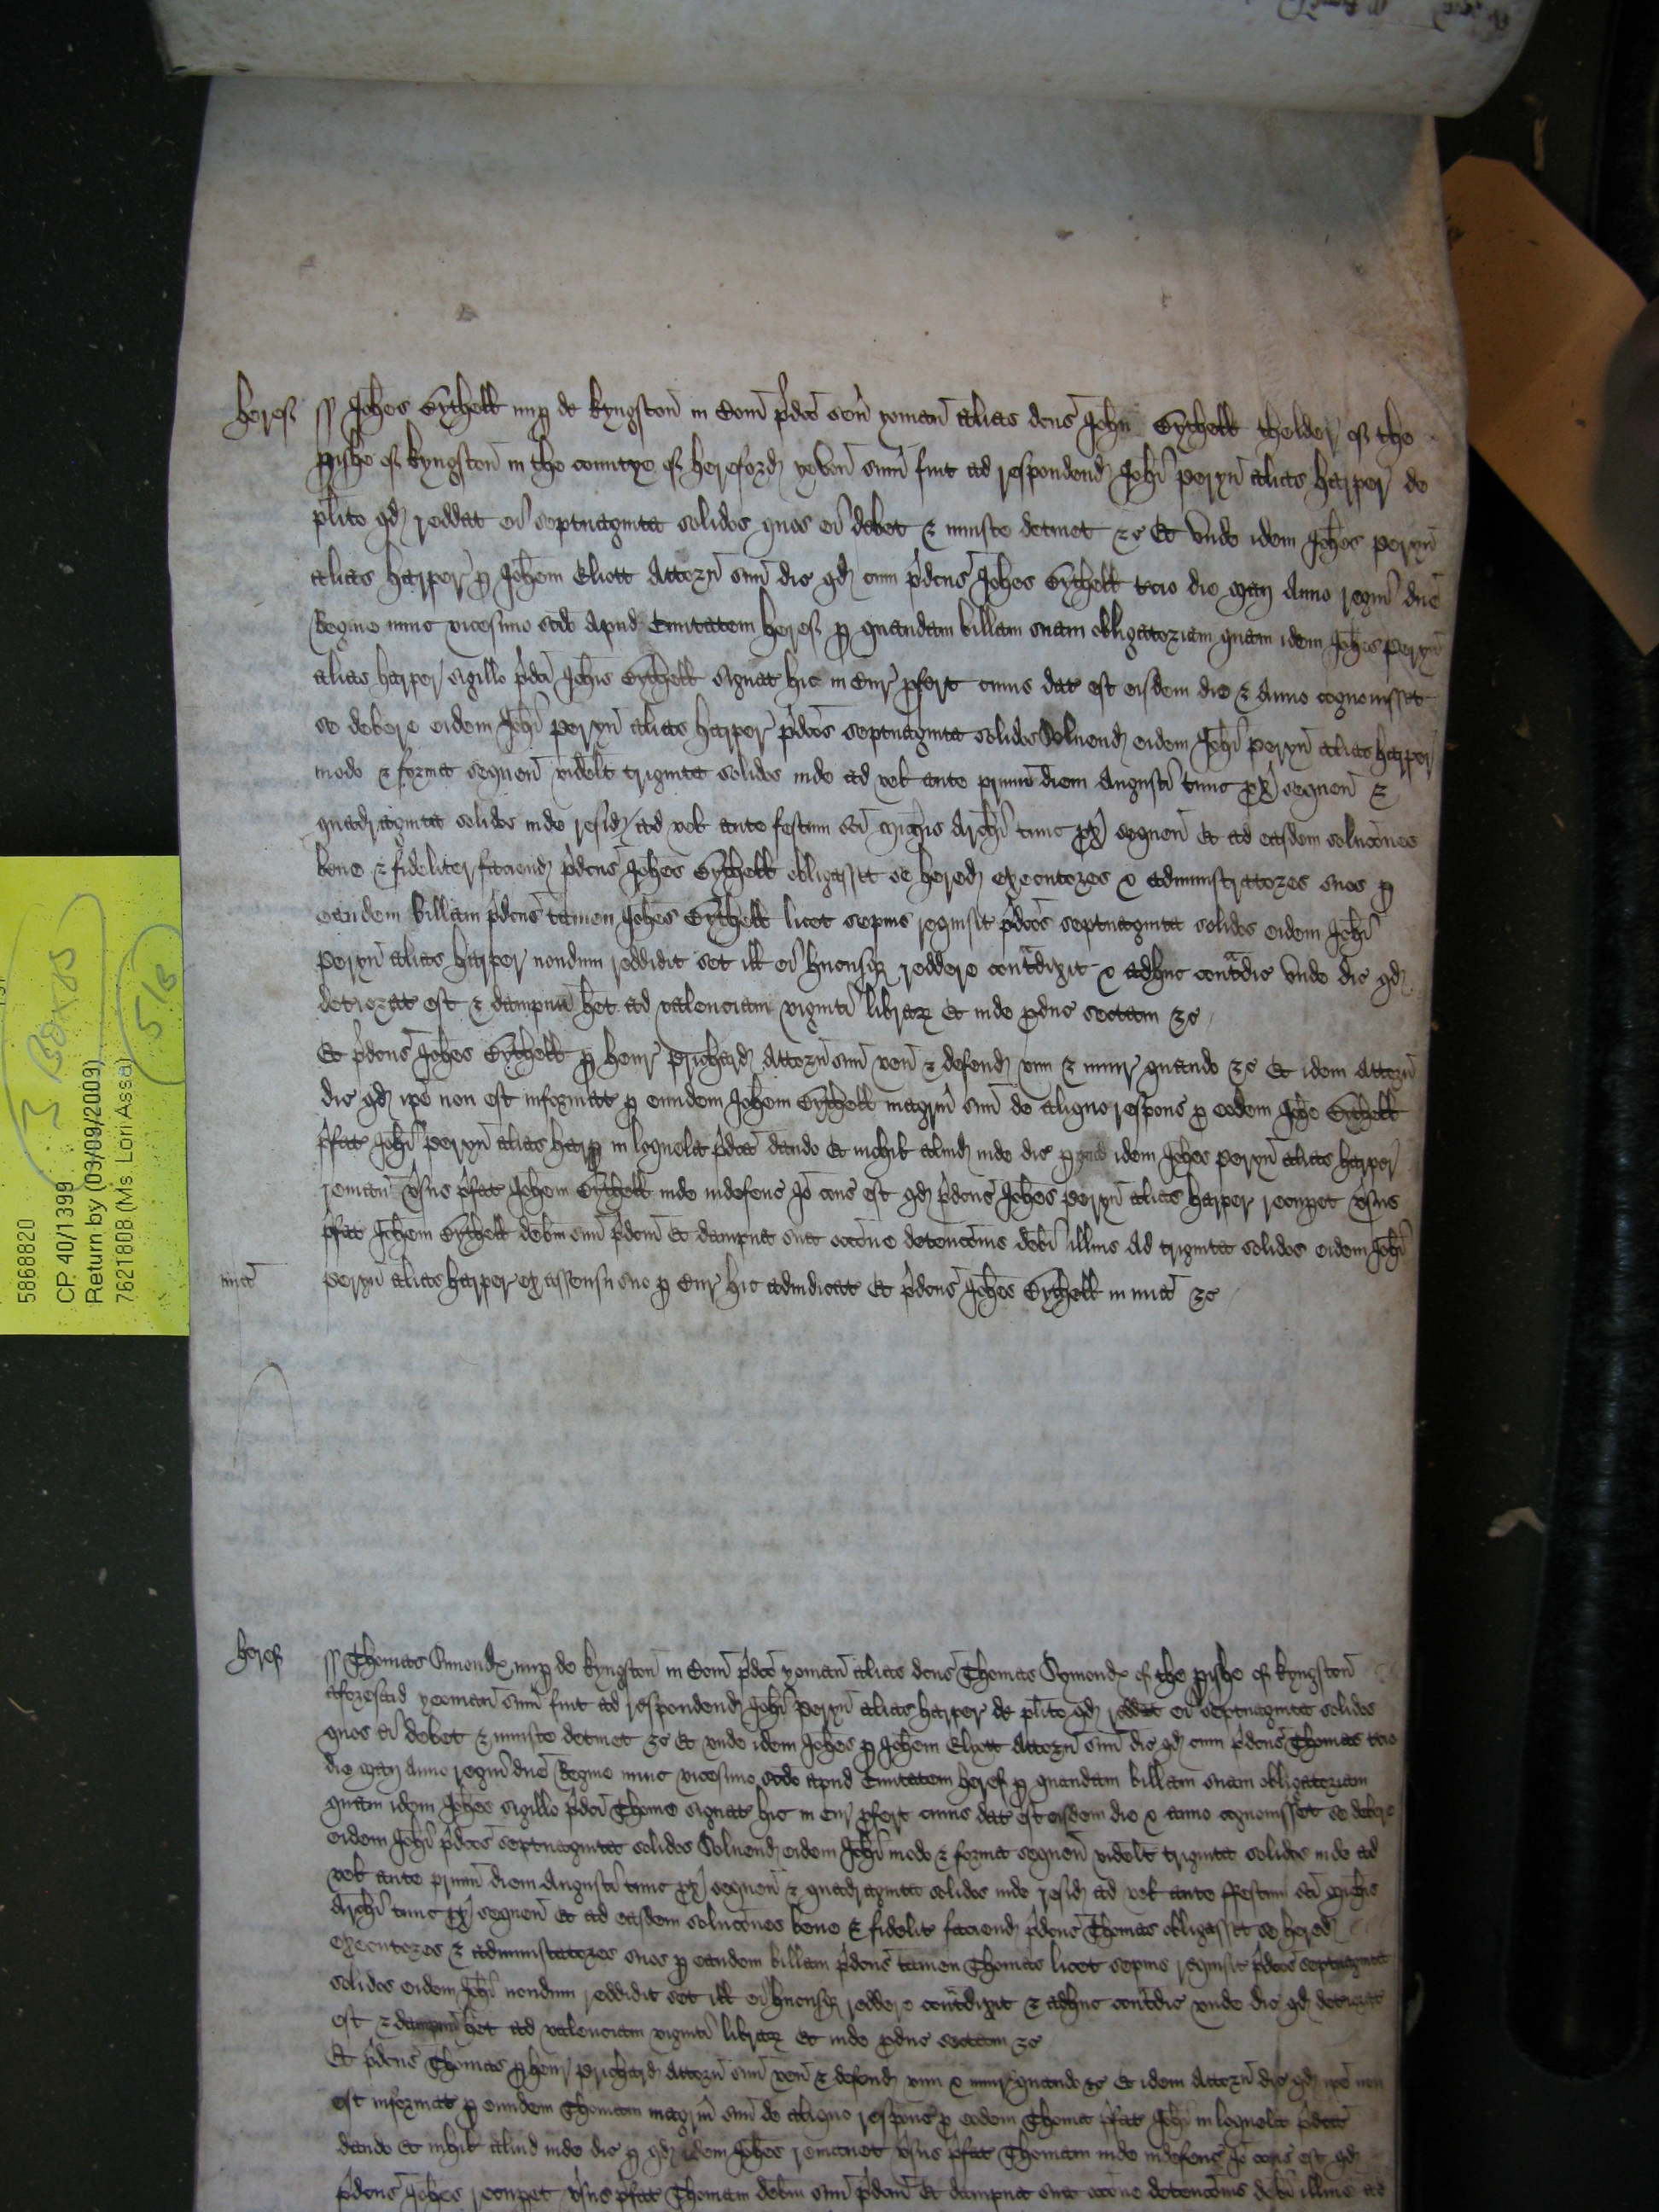 5868820
CP 40/1399
Return by (03/09/2009)
7621808 (Ms Lori Assa)
3 Boxes
5/B
Heref ss Johes Gythell nup de Kyngston in Com pdco sen yoman alias dcus John Gythell thelder of the
pishe of Kyngston in the countye of hereford yebon sum fuit ad respondend Johi Peryn alias harper de
plito qd reddat ei septuaginta solidos quos ei debet & iniuste detinet &c Et unde idem Johes Peryn
alias harper p Johem Eliott Attorn suu dic qd cum pdcus Johes Gythell tcio die Maij Anno regni dne
Regine nunc vicesimo scdo Apud Civitatem Heref p quandam billam suam obligatoriam quam idem Johes Peryn
alias harper sigillo pdci Johis Gythell signat hic in Cur pfert cuius dat est eisdem die & Anno cognovisset
se debere eidem Johi Peryn alias harper pdcos septuaginta solidos Solvend eidem Johi Peryn alias harper
modo & forma sequen videlt triginta solidos inde ad vel ante primu diem Augusti tunc px sequen &
quadraginta solidos inde resid ad vel ante festum sci Michis Archi tunc px sequen Et ad easdem soluciones
bene & fideliter faciend pdcus Johes Gythell obligasset se hered executores & administratores suos p
eandem billam pdcus tamen Johes Gythell licet sepius requisit pdcos septuaginta solidos eidem Johi
Peryn alias harper nondum reddidit set ill ei hucusq reddere contradixit & adhuc contradic Unde dic qd
deteriorat est & dampnu het ad valenciam viginti librar Et inde pduc sectam &c
Et pdcus Johes Gythell p Henr Prichard Attorn suu ven & defend vim & iniur quando &c Et idem Attorn
dic qd ipe non est informat p eundem Johem Gythell magrm suu de aliquo respons p eodem Johe Gythell
pfat Johi Peryn alias harp in loquela pdca dando Et nichil aliud inde dic p quod idem Johes Peryn alias harper
remanet vsus pfat Johem Gythell inde indefens Io cons est qd pdcus Johes Peryn alias harper recupet vsus
pfat Johem Gythell debm suu pdcm Et dampna sua occone detencionis debi illius Ad triginta solidos eidem Johi
mia Peryn alias harper ex assensu suo p Cur hic adiudicat Et pdcus Johes Gythell in mia &c
Heref ss Thomas Simonds nup de Kyngston in Com pdco yoman alias dcus Thomas Symonds of the pishe of Kyngston
aforesaid yeoman sum fuit ad respondend Johi Peryn alias harper de plito qd reddat ei septuaginta solidos
quos ei debet & iniuste detinet &c Et unde idem Johes p Johem Elyott Attorn suu dic qd cum pdcus Thomas tcio
die Maij Anno regni dne Regine nunc vicesimo scdo apud Civitatem Heref p quandam billam suam obligatoriam
quam idem Johes sigillo pdci Thome signat hic in Cur pfert cuius dat est eisdem die & anno cognovisset se debere
eidem Johi pdcos septuaginta solidos Solvend eidem Johi modo & forma sequen videlt triginta solidos inde ad
vel ante primu diem Augusti tunc px sequen & quadraginta solidos inde resid ad vel ante ffestum sci Michis
Archi tunc px sequen Et ad easdem soluciones bene & fidelit faciend pdcus Thomas obligasset se hered
executores & administratores suos p eandem billam pdcus tamen Thomas licet sepius requisit pdcos septuaginta
solidos eidem Johi nondum reddidit set ill ei hucusq reddere contradixit & adhuc contradic unde dic qd deteriorat
est & dampnu het ad valenciam viginti librar Et inde pduc sectam &c
Et pdcus Thomas p Henr Prichard Attorn suu ven & defend vim & iniur quando &c Et idem Attorn dic qd ipe non
est informat p eundem Thomam magrm suu de aliquo respons p eodem Thoma pfat Johi in loquela pdca
dando Et nichil aliud inde dic p qd idem Johes remanet vsus pfat Thomam inde indefens Io cons est qd
pdcus Johes recupet vsus pfat Thomam debm suu pdcm Et dampna sua occone detencionis debi illius ad